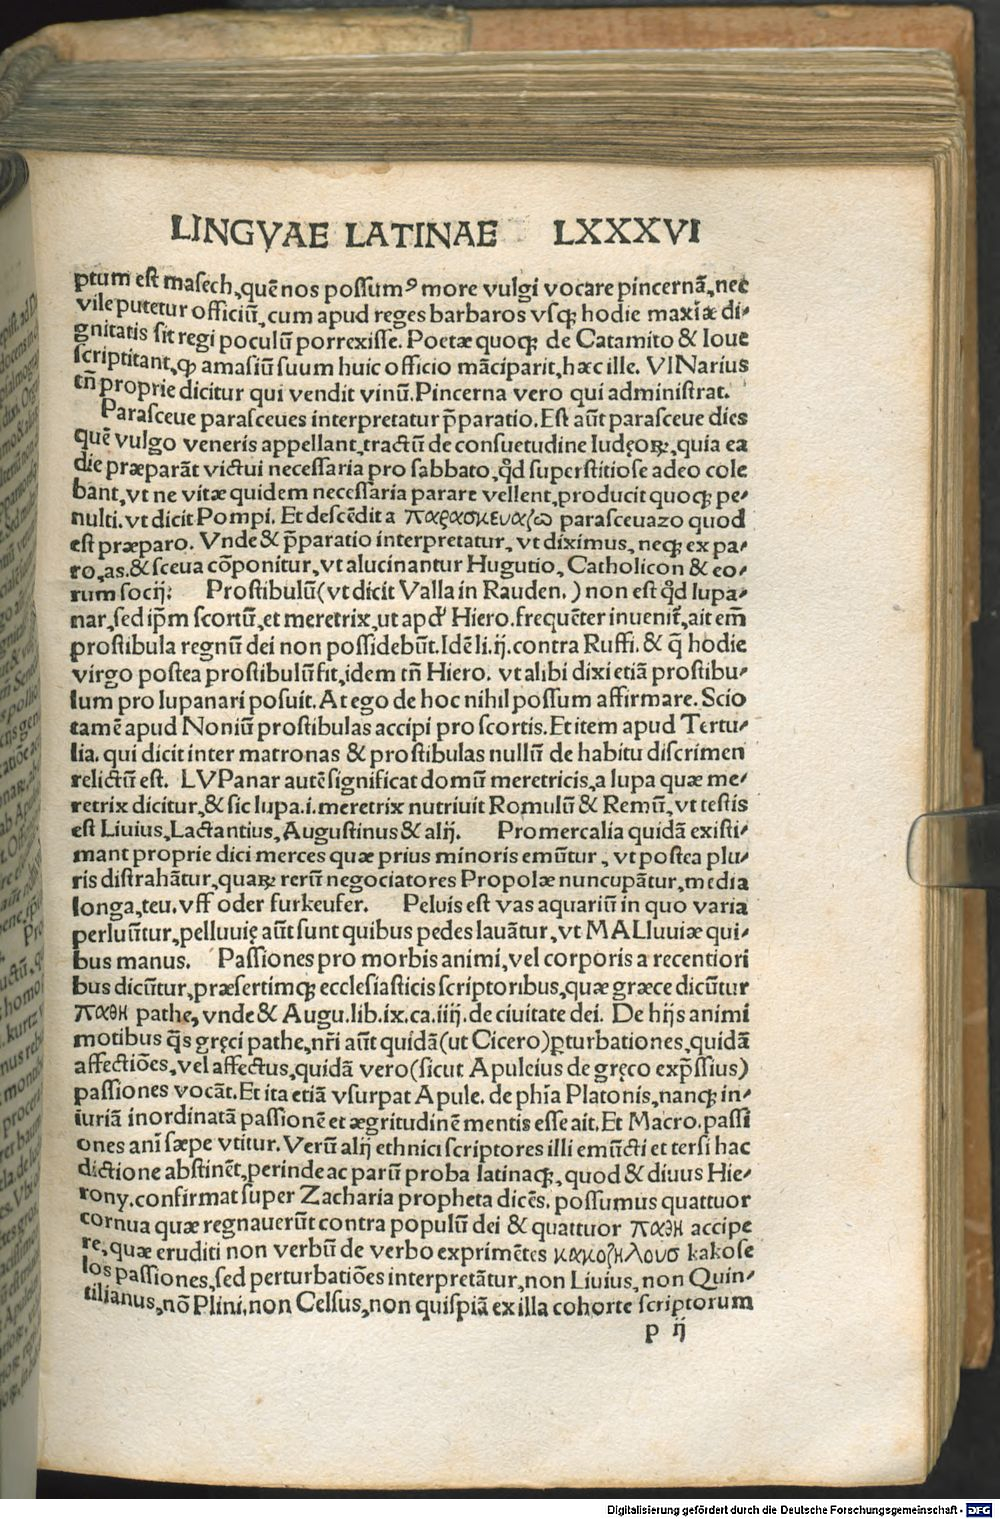 LINGVAE LATINAE LXXXVI
ptum eſt maſech, quē nos poſſumꝰ more vulgi vocare pincernā, nec
vile putetur officiū, cum apud reges barbaros vſqꝫ hodie maxīæ di⸗
gnitatis ſit regi poculū porrexiſſe. Poetæ quoqꝫ de Catamito & Ioue
ſcriptitant, ꝙ amaſiū ſuum huic officio māciparit, hæc ille. VINarius
tn̄ proprie dicitur qui vendit vinū. Pincerna vero qui adminiſtrat.
Paraſceue paraſceues interpretatur p̄paratio. Eſt aūt paraſceue dies
quē vulgo veneris appellant, tractū de conſuetudine Iudęoꝝ, quia ea
die præparāt victui neceſſaria pro ſabbato, qd̓ ſuperſtitioſe adeo cole
bant, vt ne vitæ quidem neceſſaria parare vellent, producit quoqꝫ pe⸗
nulti. vt dicit Pompi. Et deſcēdit a παρασκευαζω paraſceuazo quod
eſt præparo. Vnde & p̄paratio interpretatur, vt diximus, neqꝫ ex pa⸗
ro, as. & ſceua cōponitur, vt alucinantur Hugutio, Catholicon & eo⸗
rum ſocij: Proſtibulū (vt dicit Valla in Rauden.) non eſt qd̓ lupa⸗
nar, ſed ip̄m ſcortū, et meretrix, ut apd̓ Hiero. frequēter inuenit᷑, ait em̄
proſtibula regnū dei non poſſidebūt. Idē li. ij. contra Ruffi. & q̄ hodie
virgo poſtea proſtibulū fit, idem tn̄ Hiero. vt alibi dixi etiā proſtibu⸗
lum pro lupanari poſuit. At ego de hoc nihil poſſum affirmare. Scio
tamē apud Noniū proſtibulas accipi pro ſcortis. Et item apud Tertu⸗
lia. qui dicit inter matronas & proſtibulas nullū de habitu diſcrimen
relictū eſt. LVPanar autē ſignificat domū meretricis, a lupa quæ me⸗
retrix dicitur, & ſic lupa .i. meretrix nutriuit Romulū & Remū, vt teſtis
eſt Liuius, Lactantius, Auguſtinus & alij. Promercalia quidā exiſti⸗
mant proprie dici merces quæ prius minoris emūtur, vt poſtea plu⸗
ris diſtrahātur, quaꝝ rerū negociatores Propolæ nuncupātur, media
longa, teu. vff oder furkeufer. Peluis eſt vas aquariū in quo varia
perluūtur, pelluuię aūt ſunt quibus pedes lauātur, vt MALluuiæ qui⸗
bus manus. Paſſiones pro morbis animi, vel corporis a recentiori
bus dicūtur, præſertimqꝫ eccleſiaſticis ſcriptoribus, quæ græce dicūtur
παθη pathe, vnde & Augu. lib. ix. ca. iiij. de ciuitate dei. De hijs animi
motibus q̄s gręci pathe, nr̄i aūt quidā (ut Cicero) ꝑturbationes, quidā
affectiōes, vel affectus, quidā vero (ſicut Apuleius de gręco exp̄ſſius)
paſſiones vocāt. Et ita etiā vſurpat Apule. de phīa Platonis, nanqꝫ in⸗
iuriā inordinatā paſſionē et ægritudinē mentis eſſe ait. Et Macro. paſſi
ones ani̅ ſæpe vtitur. Verū alij ethnici ſcriptores illi emūcti et terſi hac
dictione abſtinēt, perinde ac parū proba latinaqꝫ, quod & diuus Hie⸗
rony. confirmat ſuper Zacharia propheta dicēs. poſſumus quattuor
cornua quæ regnauerūt contra populū dei & quattuor παθη accipe
re, quæ eruditi non verbū de verbo exprimētes κακοζηλουσ kakoſe
los paſſiones, ſed perturbatiōes interpretātur, non Liuius, non Quin⸗
tilianus, nō Plini. non Celſus, non quiſpiā ex illa cohorte ſcriptorum
p ij
Digitalisierung gefördert durch die Deutsche Forschungsgemeinschaft - DFG